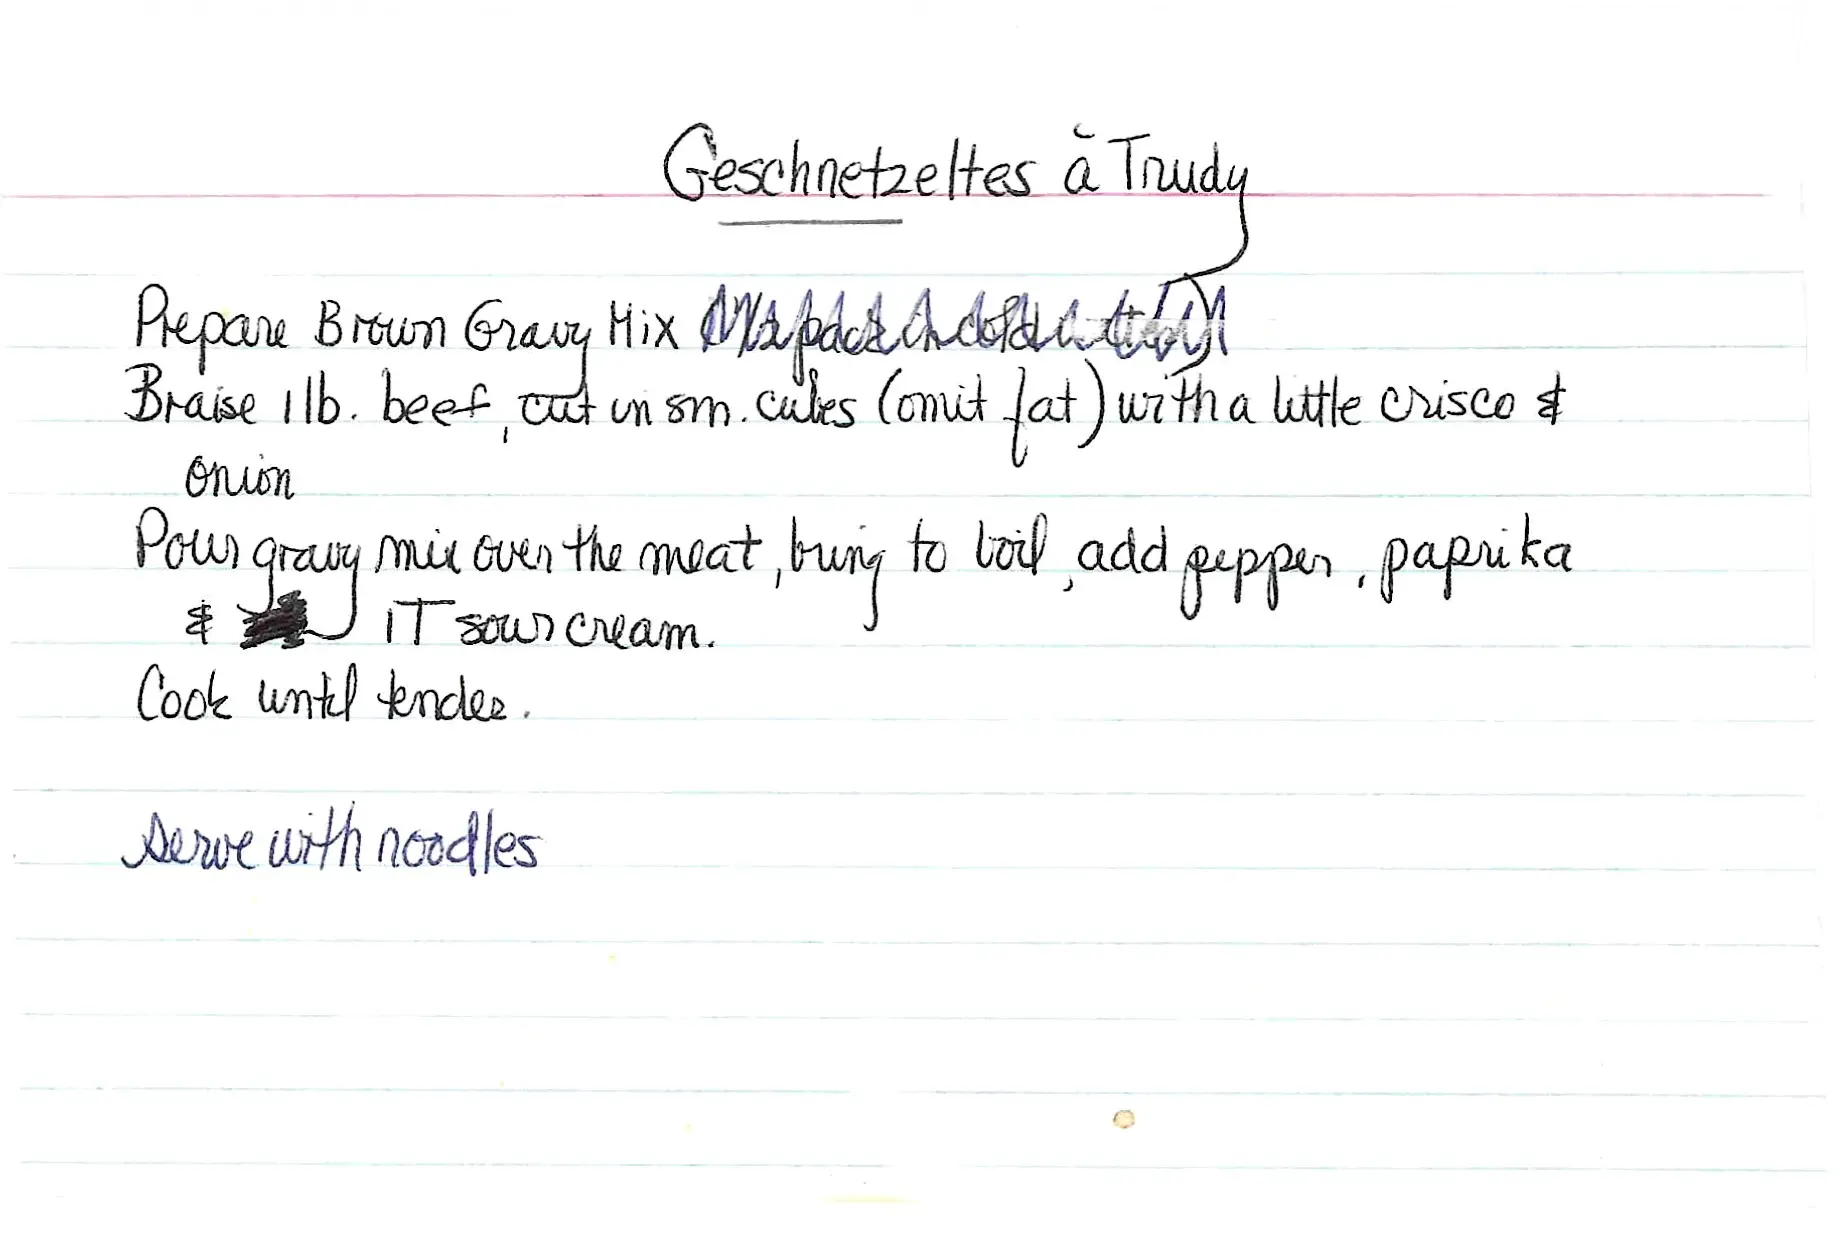 Geschnetzeltes à Trudy
Prepare Brown Gravy Mix
Braise 1 lb. beef, cut in sm. cubes (omit fat) with a little crisco &
onion
Pour gravy mix over the meat, bring to boil, add pepper, paprika
& 1T sour cream.
Cook until tender.
Serve with noodles